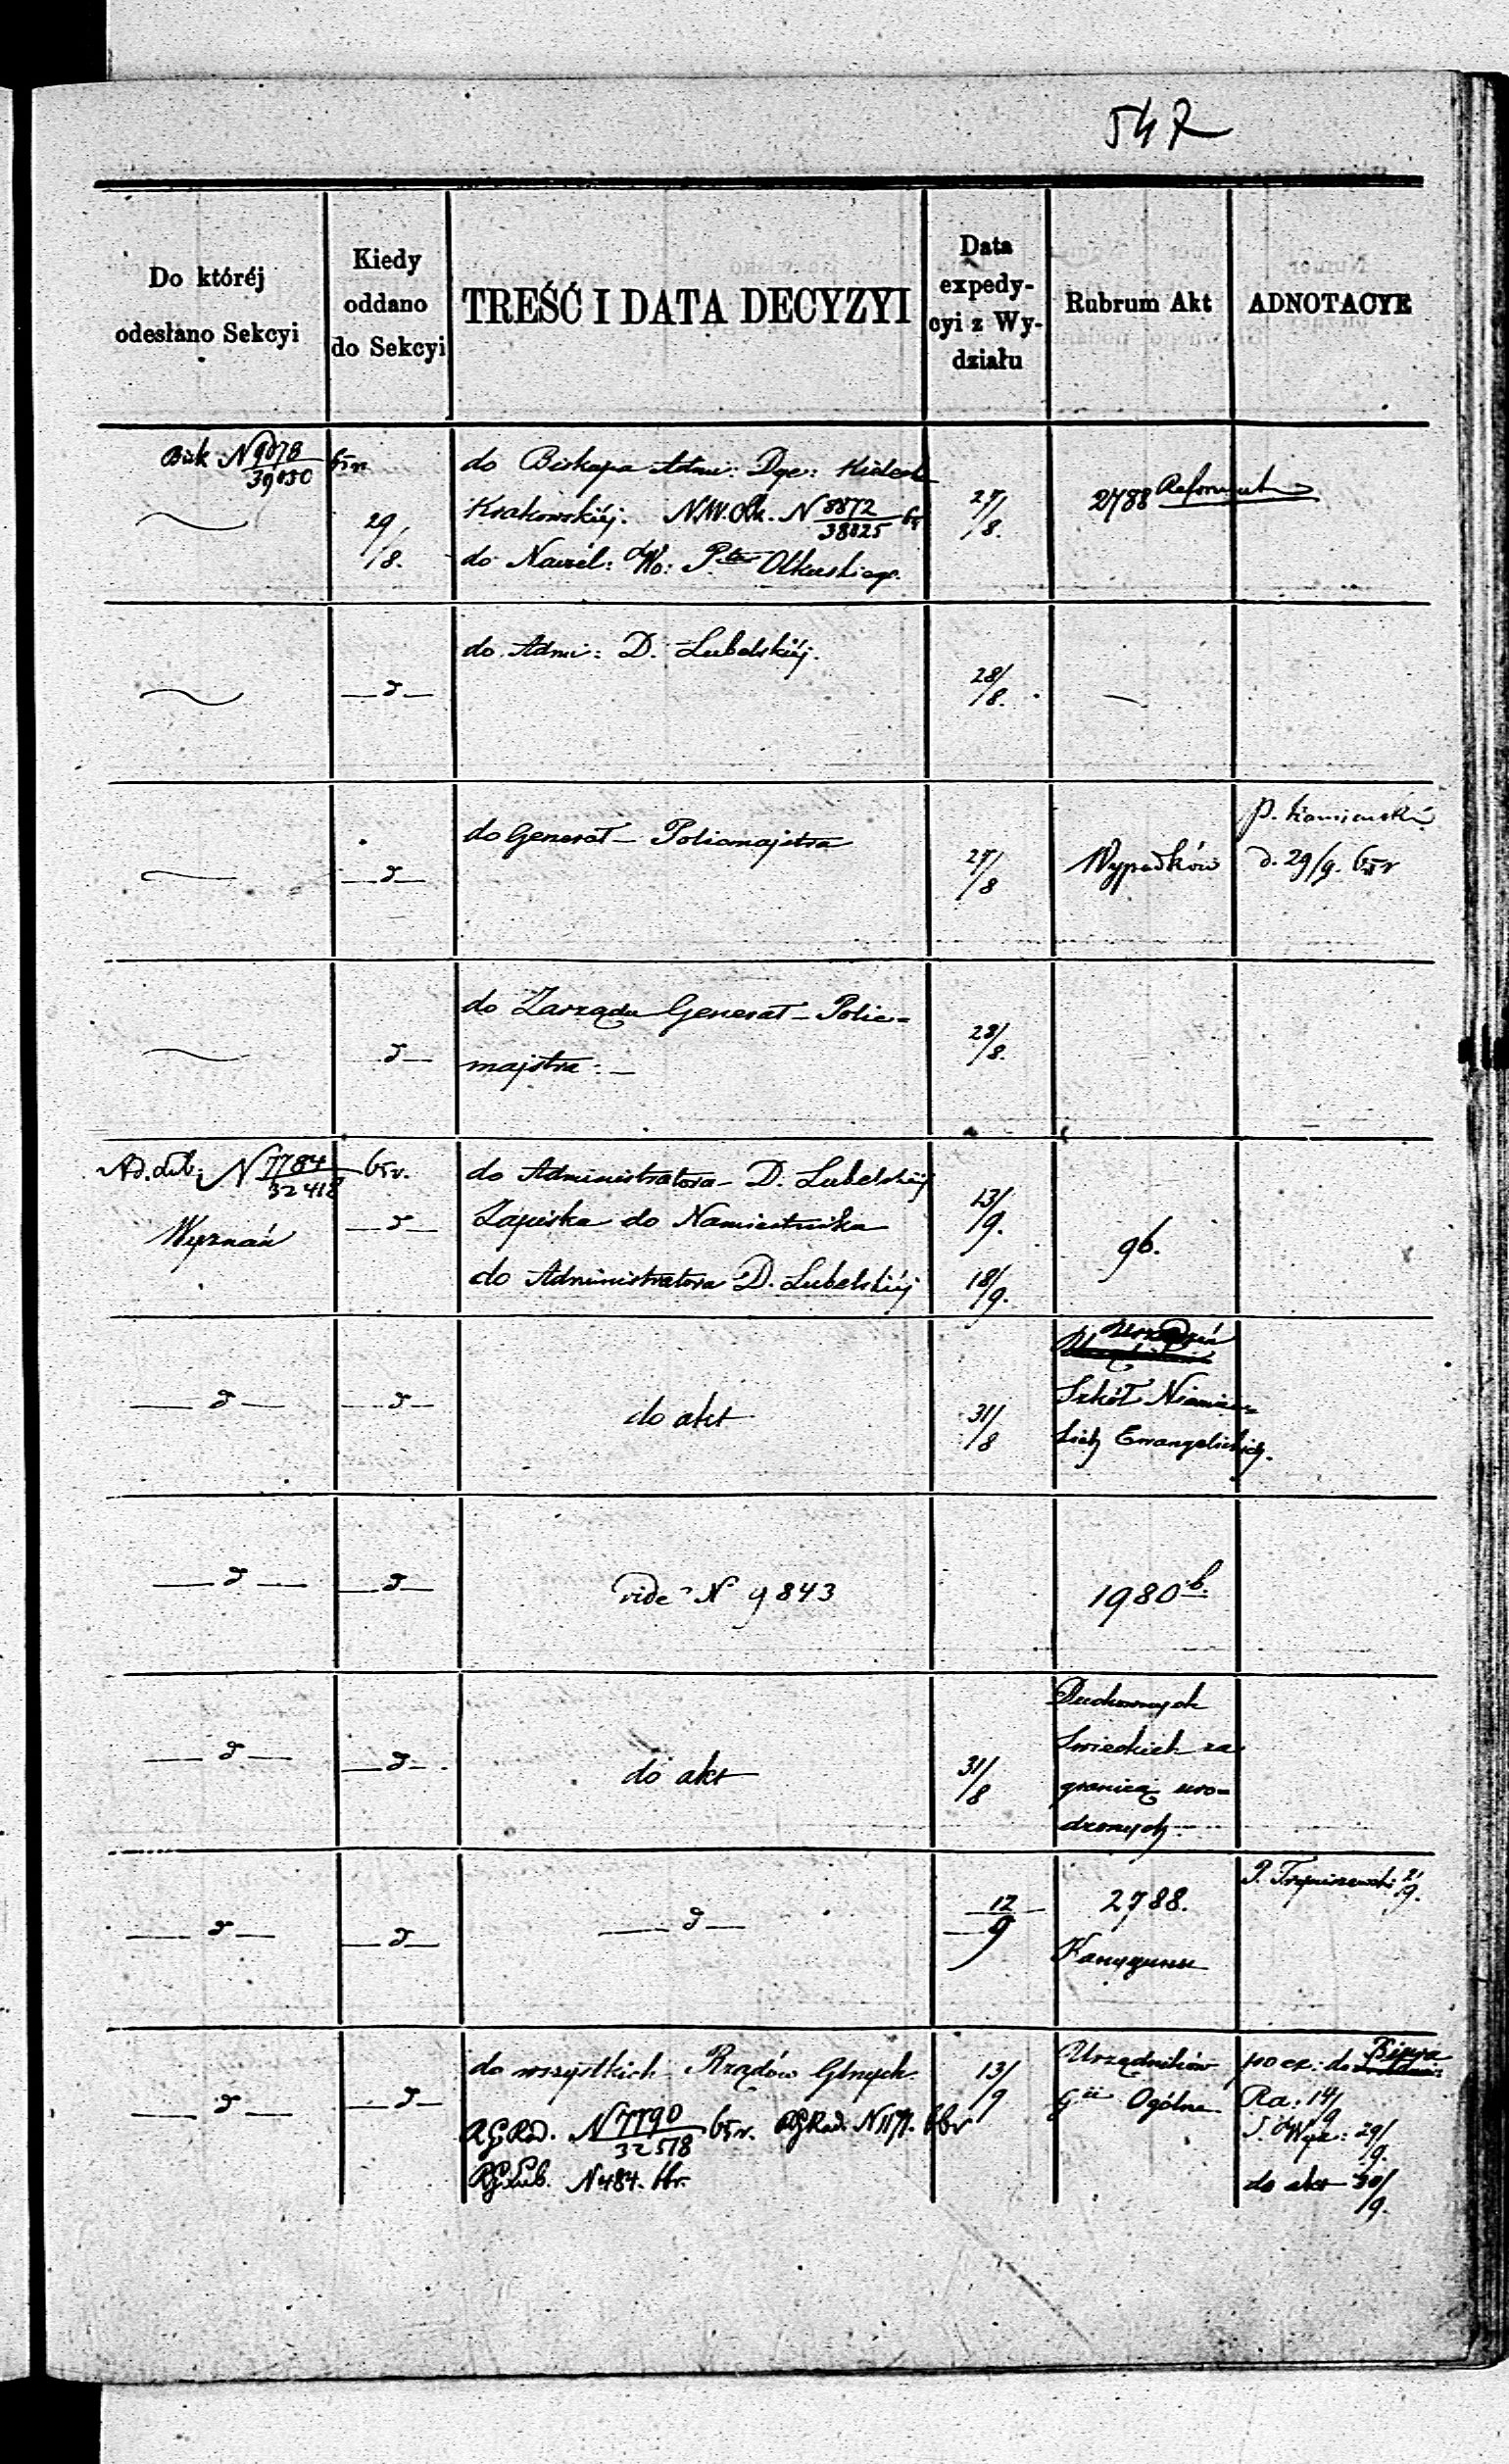 547
Do któréj
odesłano Sekcyi
Kiedy
oddano
do Sekcyi
TREŚĆ I DATA DECYZYI
Data
expedy-
cyi z Wy-
działu
Rubrum Akt
ADNOTACYE
Bisk N 9078/39050 65 r
29/8.
do Biskupa Admi: Dye:
Krakowskiéj. N 8872/38825 65
do Naczél: Wo: Olkuskiego.
27/8.
2788 Reformat
do Admi: D. Lubelskiéj.
28/8.
do Generał-Policmajstra
27/8
Wypadków
P. Kamieński
d. 29/9. 65 r
do Zarządu Generał-Polic=
majstra.
28/8.
Ad. Lub: N 7784/32418 65 r.
Wyznań
do Administratora D. Lubelskiéj
Zapiska do Namiestnika
do Administratora D. Lubelskiéj
13/9.
18/9.
96.
do akt
31/8
Urządzeń
Szkół Niemiec=
kich Ewangelickich.
vide N 9843
1980 b.
do akt
31/8
Duchownych
Świeckich za
granicą uro=
dzonych.
12/9
2788.
Капуцини
21/9.
do wszystkich Rządów Glnych.
RG Rad. N 7790/32578 65 r. RG Rad. N 66 r
RG Lub. N 484. 66 r.
13/9
Urzędników
Gii Ogólne
po ex: do Biura
Ra: 14/9
S. Wyz: 29/9.
do akt 30/9.